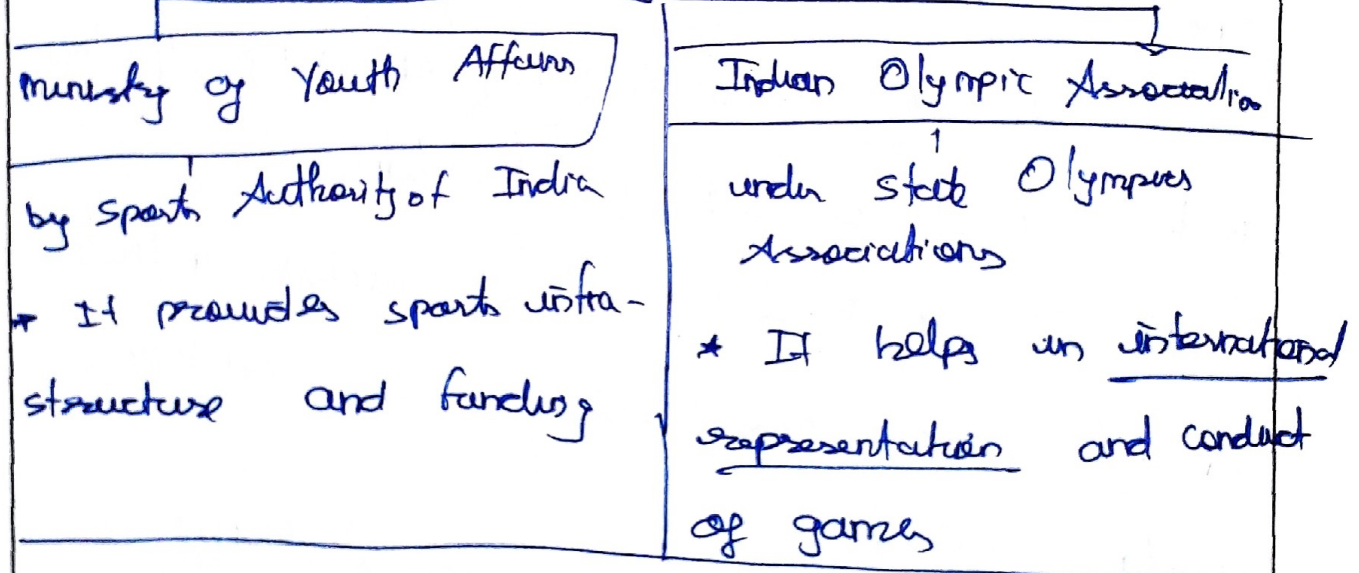 Ministry of Youth Affairs
by Sports Authority of India
→ It provides sports infra-
structure and funding
Indian Olympic Association
under State Olympics
Associations
* It helps in international
representation and conduct
of games